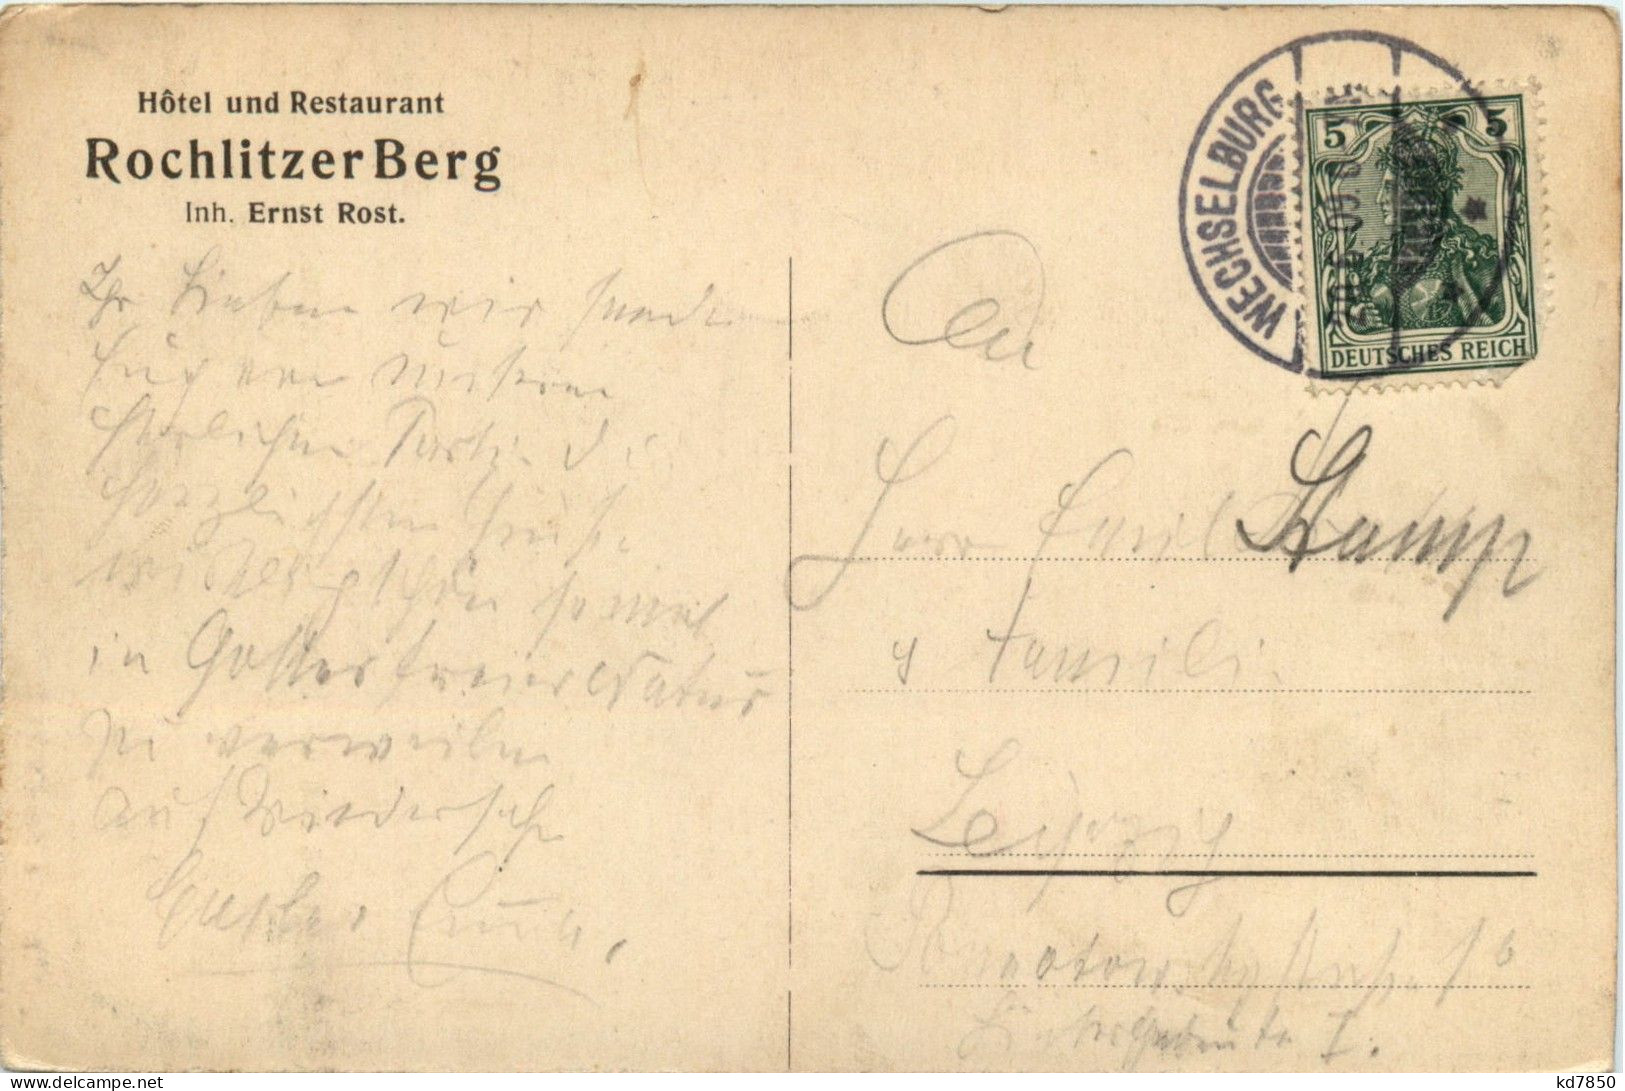 Hôtel und Restaurant
Rochlitzer Berg
Inh. Ernst Rost.
Ihr Lieben wir senden
Euch von unserer
herrlichen Partie die
herzlichsten Grüße
in Gottes freier Natur
zu verweilen
auf Wiedersehn
WECHSELBURG
5 5
DEUTSCHES REICH
An
Herrn Emil Kamp
u Familie
Leipzig
Hintergebäude I.
kd7850